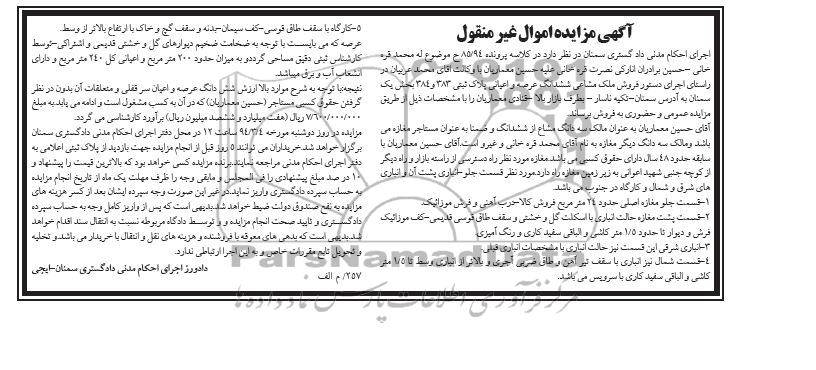 آگهی مزایده اموال غیر منقول
اجرای احکام مدنی داد گستری سمنان در نظر دارد در کلاسه پرونده ۸۵/۹۴ ح موضوع له محمد قره
خانی –حسین برادران انارکی نصرت قره خانی علیه حسین معماریان با وکالت آقای محمد عربیان در
راستای اجرای دستور فروش ملک مشاعی ششدانگ عرصه و اعیانی پلاک ثبتی ۳۸۳ و ۳۸۴ بخش یک
سمنان به آدرس سمنان–تکیه ناسار – بطرف بازار بالا –قنادی معماریان را با مشخصات ذیل از طریق
مزایده عمومی و حضوری به فروش برساند.
آقای حسین معماریان به عنوان مالک سه دانگ مشاع از ششدانگ و ضمنا به عنوان مستاجر مغازه می
باشد ومالک سه دانگ دیگر مغازه به نام آقای محمد قره خانی و غیرو است.آقای حسین معماریان با
سابقه حدود ۴۸ سال دارای حقوق کسبی می باشد.مغازه مورد نظر راه دسترسی از راسته بازار و راه دیگر
از کوچه جنبی شهید اعوانی به زیر زمین مغازه راه دارد.مورد نظر قسمت جلو–انباری پشت آن و انباری
های شرق و شمال و کارگاه در جنوب می باشد.
۱–قسمت جلو مغازه اصلی حدود ۲۴ متر مربع فروش کالا–درب آهنی و فرش موزائیک.
۲–قسمت پشت مغازه حالت انباری با اسکلت گل و خشتی و سقف طاق قوسی قدیمی–کف موزائیک
فرش و دیوار تا حدود ۱/۵ متر کاشی و الباقی سفید کاری و رنگ آمیزی.
۳–انباری شرقی این قسمت نیز حالت انباری با مشخصات انباری قبلی.
۴–قسمت شمال نیز انباری با سقف تیر آهن و طاق ضربی آجری و بالاتر از انباری وسط تا ۱/۵ متر
کاشی و الباقی سفید کاری با سرویس می باشد.
۵–کارگاه با سقف طاق قوسی–کف سیمان–بدنه و سقف گچ و خاک با ارتفاع بالاتر از وسط.
عرصه که می بایست با توجه به ضخامت ضخیم دیوارهای گل و خشتی قدیمی و اشتراکی–توسط
کارشناس ثبتی دقیق مساحی گرددو به میزان حدود ۲۰۰ متر مربع و اعیانی کل ۲۴۰ متر مربع و دارای
انشعاب آب و برق میباشد.
نتیجه:با توجه به شرح موارد بالا ارزش شش دانگ عرصه و اعیان سر قفلی و متعلقات آن بدون در نظر
گرفتن حقوق کسبی مستاجر (حسین معماریان) که در آن به کسب مشغول است و ادامه می یابد.به مبلغ
۷/۶۰۰/۰۰۰/۰۰۰ ریال (هفت میلیارد و ششصد میلیون ریال) برآورد کارشناسی می گردد.
مزایده در روز دوشنبه مورخه ۹۴/۳/۴ ساعت ۱۲ در محل دفتر اجرای احکام مدنی دادگستری سمنان
برگزار خواهد شد.خریداران می توانند ۵ روز قبل از انجام مزایده جهت بازدید از پلاک ثبتی اعلامی به
دفتر اجرای احکام مدنی مراجعه نمایند.برنده مزایده کسی خواهد بود که بالاترین قیمت را پیشنهاد و
۱۰ در صد مبلغ پیشنهادی را فی المجلس و مابقی وجه را ظرف مهلت یک ماه از تاریخ انجام مزایده
به حساب سپرده دادگستری واریز نماید.در غیر این صورت وجه سپرده ایشان بعد از کسر هزینه های
مزایده به نفع صندوق دولت ضبط خواهد شد.بدیهی است که پس از واریز کامل وجه به حساب سپرده
دادگستری و تایید صحت انجام مزایده و و توسط دادگاه مربوطه نسبت به انتقال سند اقدام خواهد
شد.بدیهی است که بدهی های معوقه با فروشنده و هزینه های نقل و انتقال با خریدار می باشد.و تخلیه
و تحویل تابع مقررات خاص و به این اجرا ارتباطی ندارد.
دادورز اجرای احکام مدنی دادگستری سمنان–ایجی
۲۵۷/ م الف
ParsNamadData
مرکز فرآوری اطلاعات پارس نماد داده ها